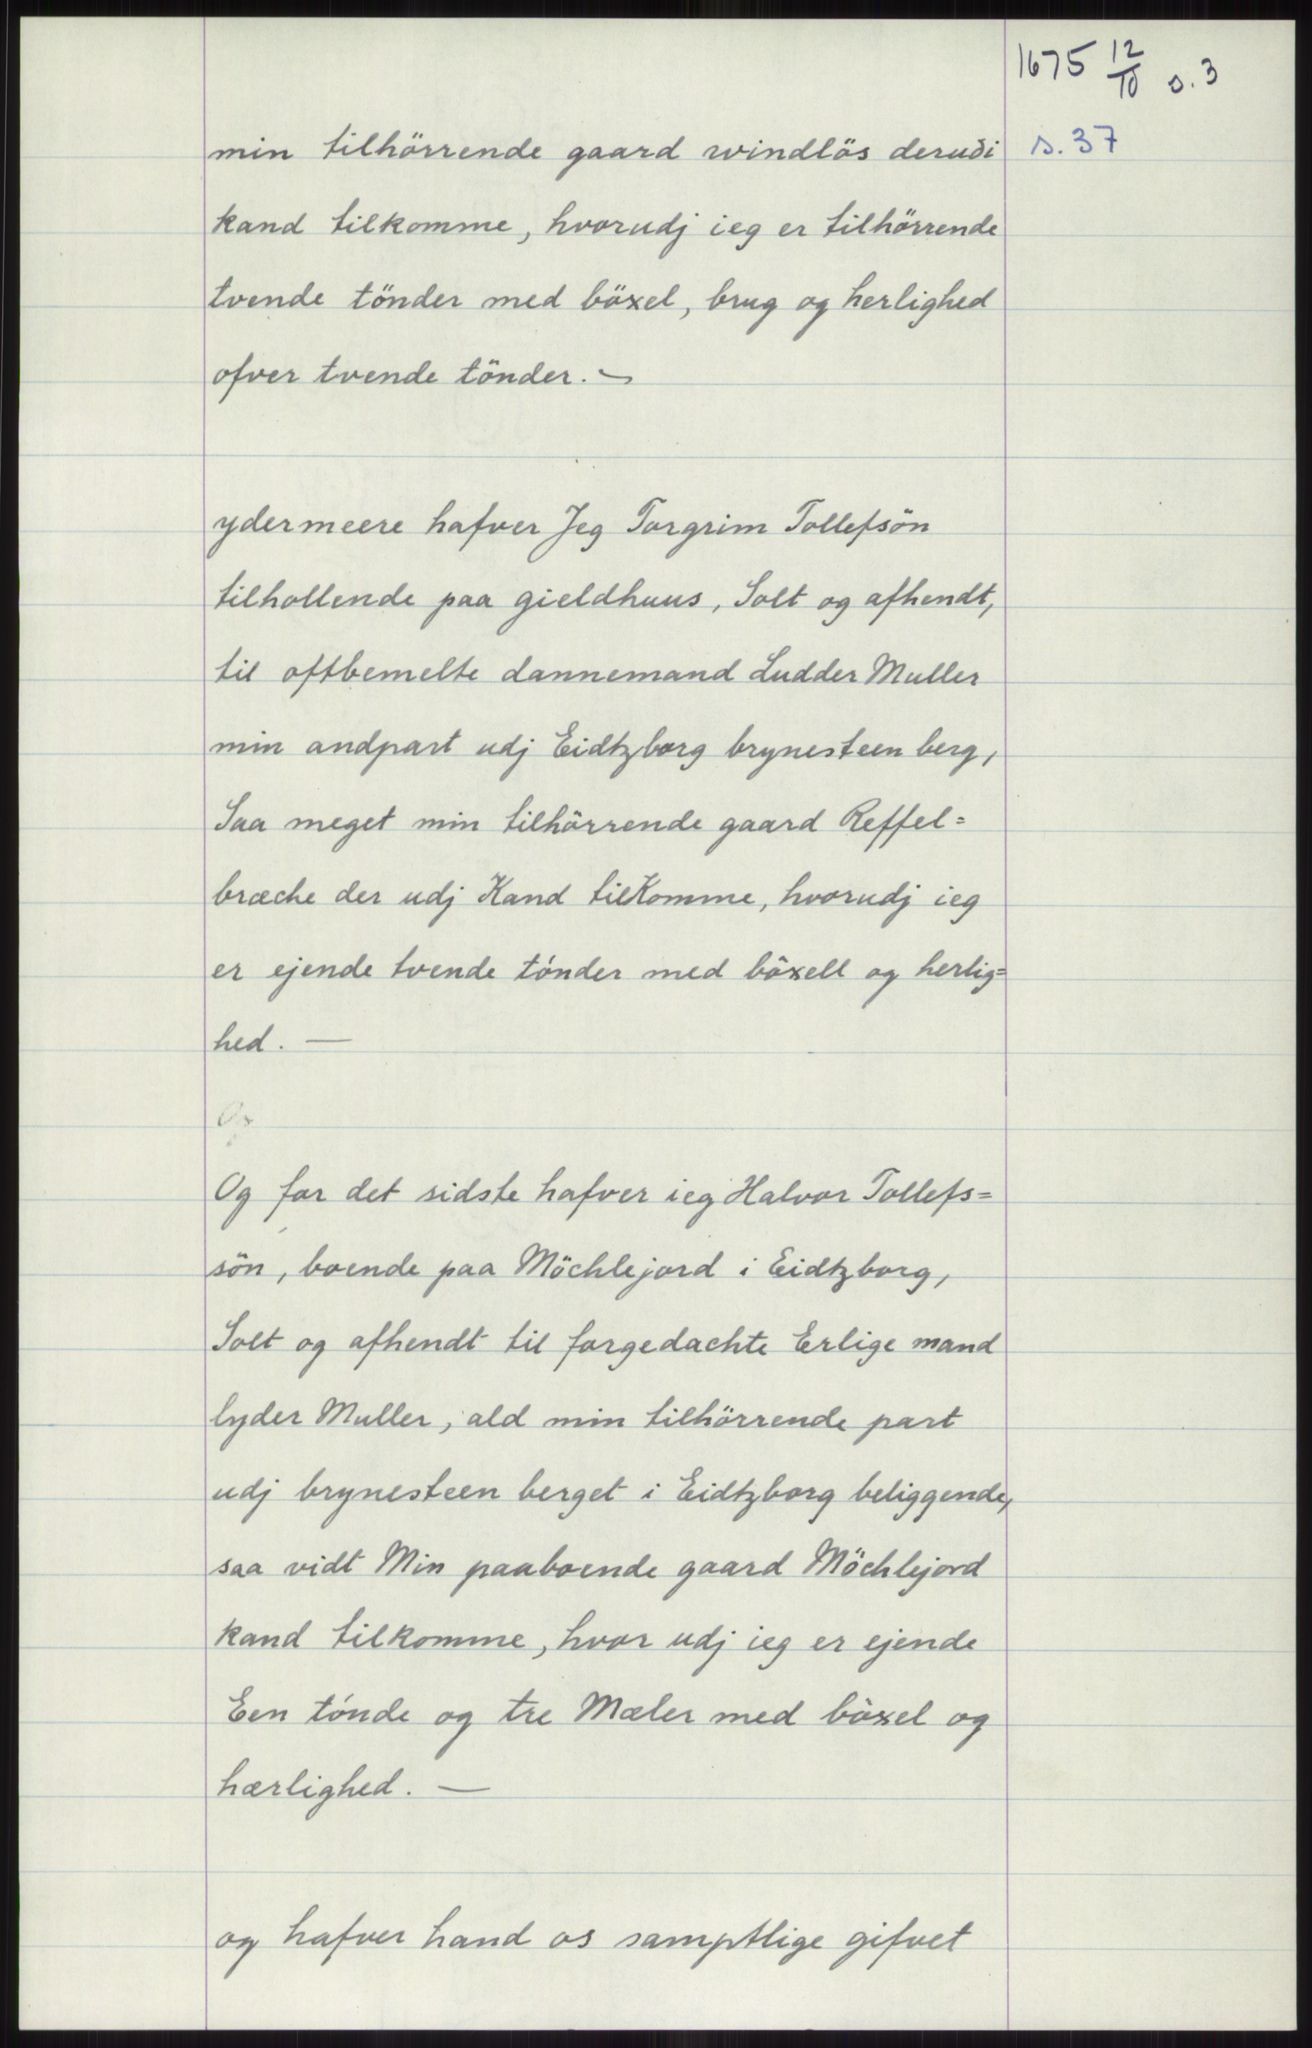 1675 12/10 s. 3
s. 37
min tilhörrende gaard windlös derudi
kand tilkomme, hvorudj ieg er tilhörrende
tvende tönder med böxel, brug og herlighed
ofver tvende tönder. —
ydermeere hafver Jeg Torgrim Tollefsön
tilhollende paa gieldhuus, Solt og afhendt,
til oftbemelte dannemand Ludder Muller
min andpart udj Eidtzborg brynesteen berg,
Saa meget min tilhörrende gaard Reffel=
bræche der udj Kand tilKomme, hvorudj ieg
er ejende tvende tónder med bóxell og herlig=
hed. —
Og
Og for det sidste hafver ieg Halvor Tollefs=
sön, boende paa Möchlejord i Eidtzborg,
Solt og afhendt til forgedachte Erlige mand
lyder Muller, ald min tilhörrende part
udj brynesteen berget i Eidtzborg beliggende,
saa vidt Min paaboende gaard Möchlejord
kand tilkomme, hvor udj ieg er ejende
Een tónde og tre Mæler med böxel og
hærlighed. —
og hafver hand os samptlige gifvet